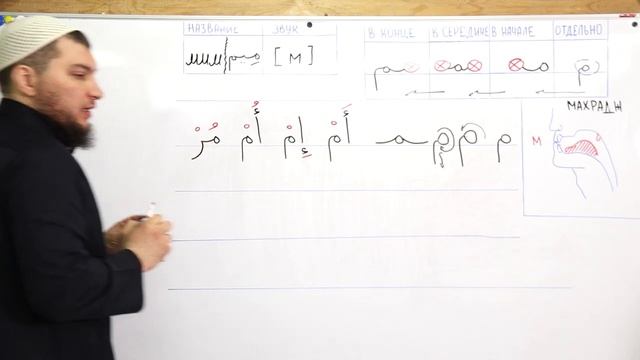 НАЗВАНИЕ ЗВУК В КОНЦЕ В СЕРЕДИНЕ В НАЧАЛЕ ОТДЕЛЬНО
мим ميم [ М ] ـم ـمـ مـ م
МАХРАДЖ
م م م ـمـ أَمْ إِمْ أُمْ مُرْ
М